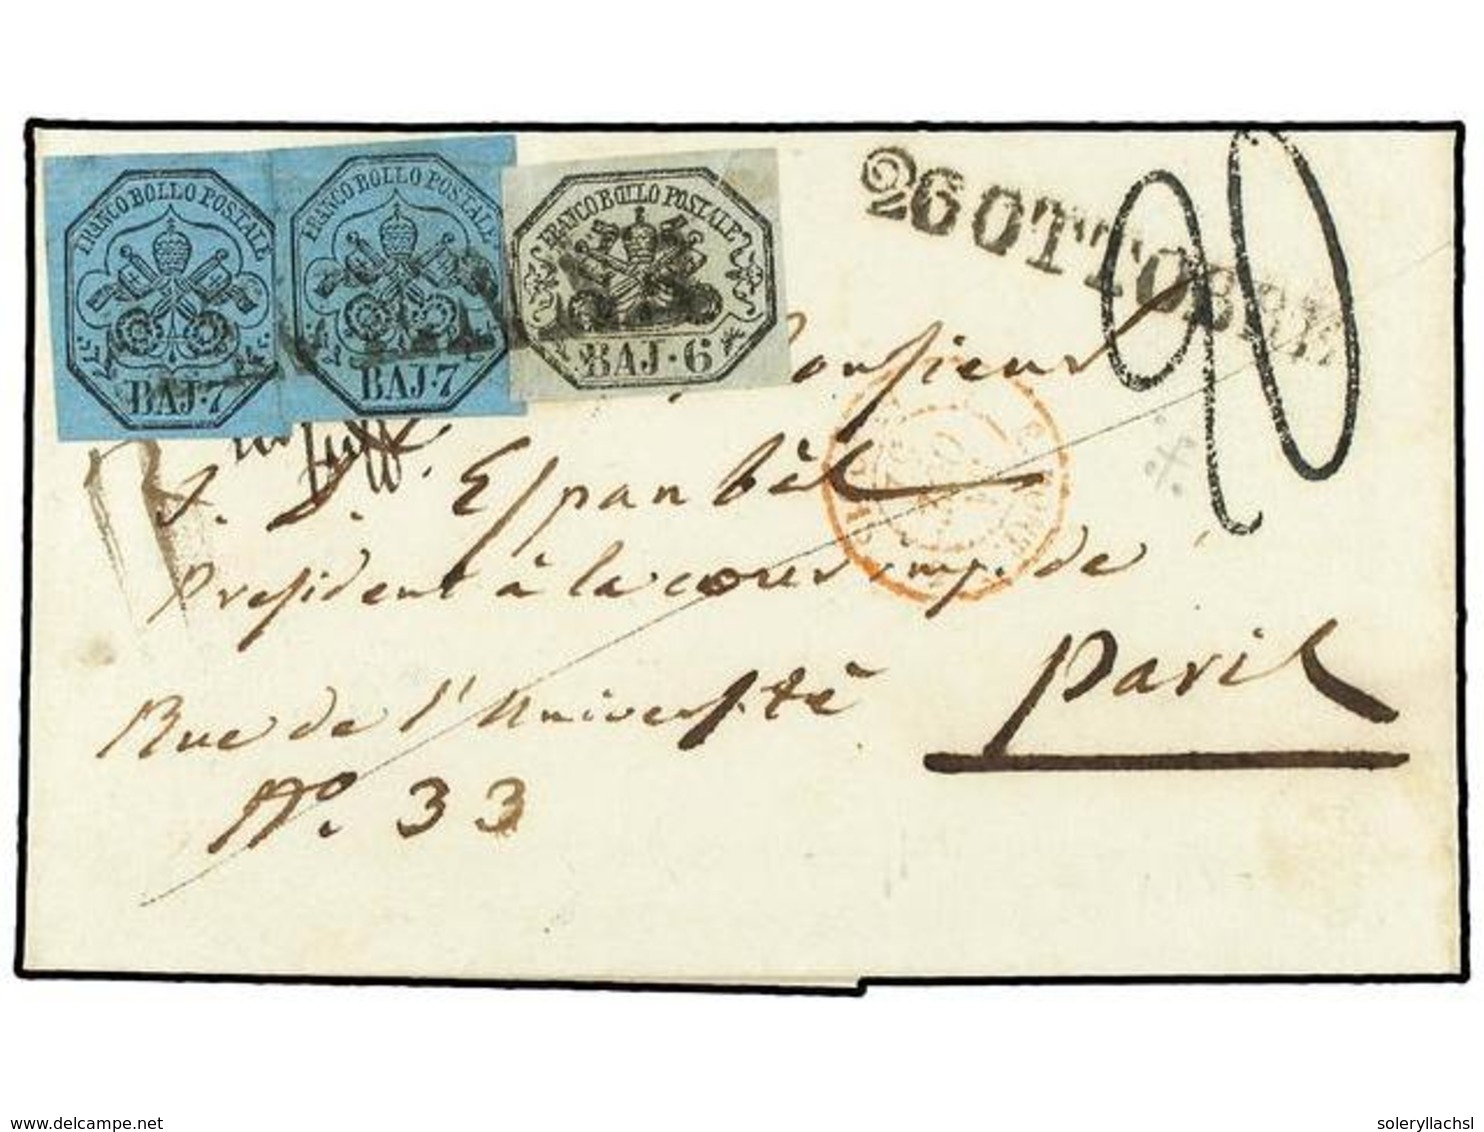 FRANCO BOLLO POSTALE
BAJ·7
FRANCO BOLLO POSTALE
BAJ·7
FRANCO BOLLO POSTALE
BAJ·6
26 OTTOBRE
Monsieur
J. D. Espanbèt
President à la cour imp. de
Paris
Rue de l'Université
No. 33
www.delcampe.net
soleryllachsl